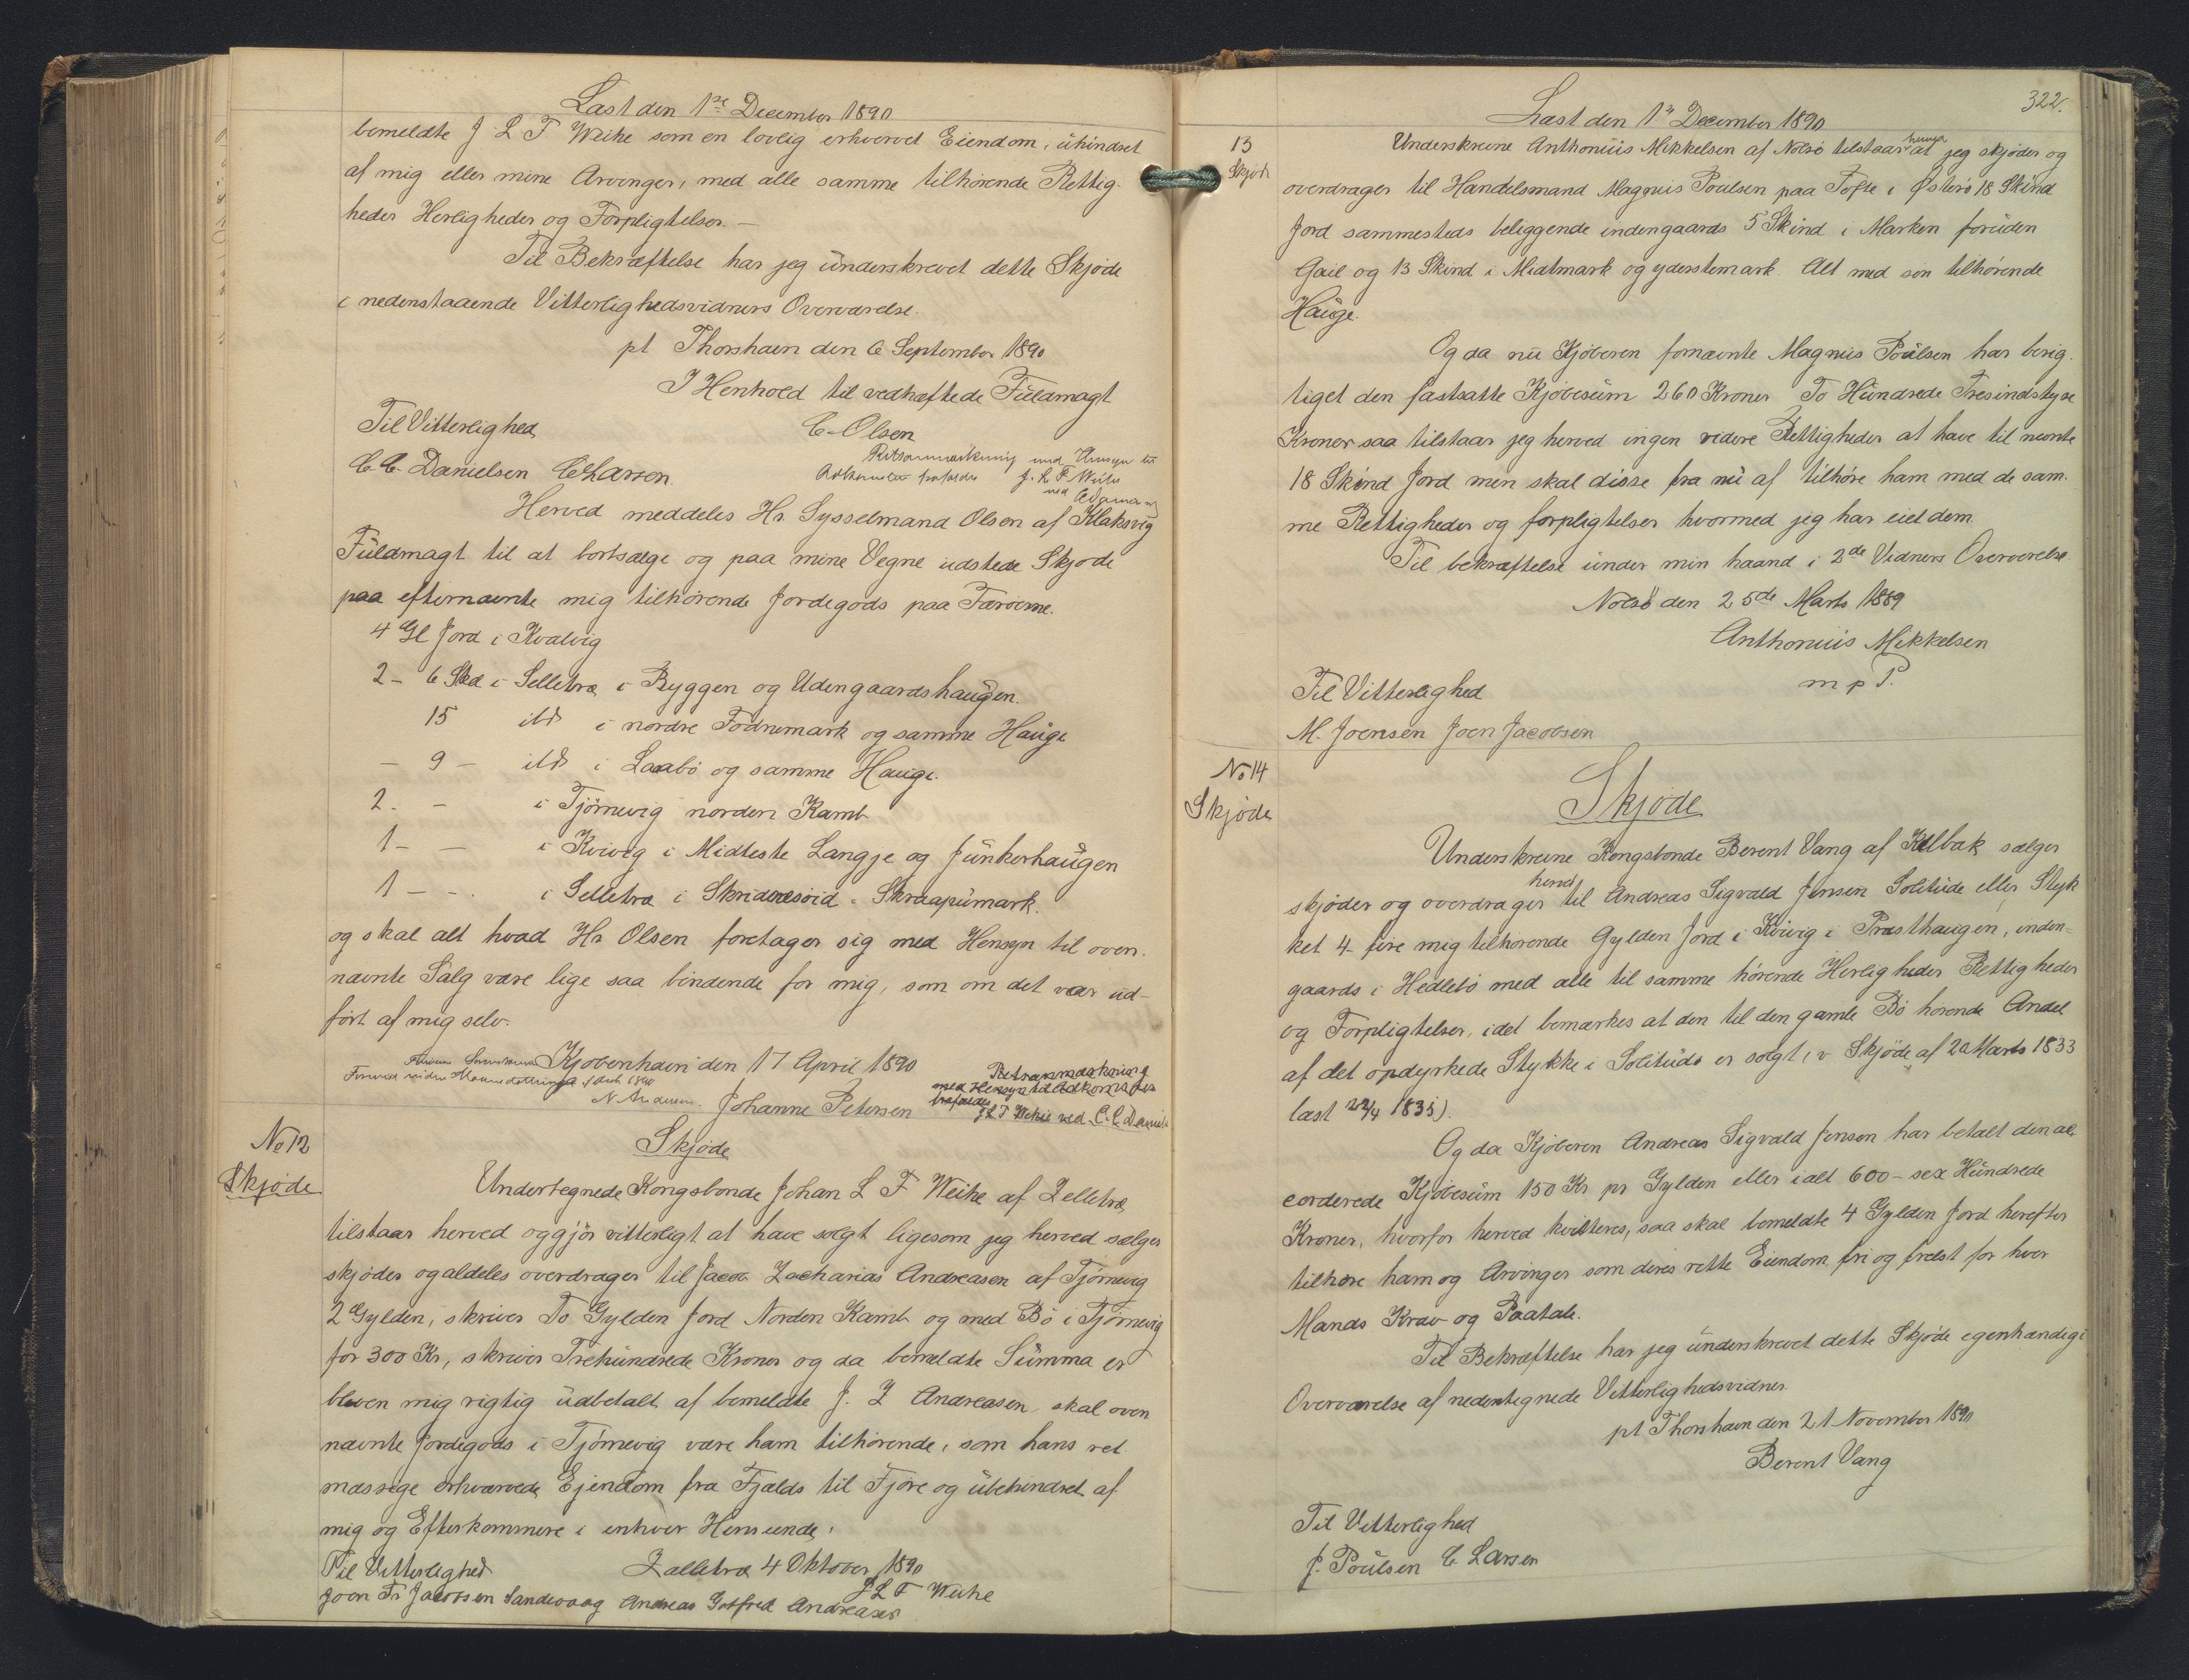 Læst den 1ste December 1890
bemeldte J. L. F. Weihe som en lovlig erhvervet Eiendom, uhindret
af mig eller mine Arvinger, med alle samme tilhørende Rettig-
heder Herligheder og Forpligtelser. —
Til Bekræftelse har jeg underskrevet dette Skjøde
i nedenstaaende Vitterlighedsvidners Overværelse.
pt Thorshavn den 6 September 1890
I Henhold til vedhæftede Fuldmagt
Til Vitterlighed
C. Olsen
C. C. Danielsen C. Larsen.
Retsanmærkning med Hensyn til
Adkomster frafaldes J. L. F. Weihe
ved
Herved meddeles Hr. Sysselmand Olsen af Klaksvig
Fuldmagt til at bortsælge og paa mine Vegne udstede Skjøde
paa efternævnte mig tilhørende Jordegods paa Færøerne.
4 Gl Jord i Kvalvig
2 - 6 Skd i Selletræ i Ryggen og Udengaardshaugen.
15 ild i nordre Fodnemark og samme Hauge
- 9 - ild i Laabø og samme Hauge.
2. - i Tjørnevig norden Kamb
1 - - i Kvivig i Midteste Langgje og Junkerhaugen
1 - - . i Selletræ i Skridaresoid - Skraapumark.
og skal alt hvad Hr Olsen foretager sig med Hensyn til oven-
nævnte Salg være lige saa bindende for mig, som om det var ud-
ført af mig selv.
Kjøbenhavn den 17 April 1890
N. Andersen. Johanne Petersen
Retsanmærkning
med Hensyn til Adkomster
frafaldes
J L F Weihe ved C. C. Daniels
No 12
Skjøde
Skjøde
Undertegnede Kongsbonde Johan L F Weihe af Zelletræ
tilstaar herved og gjør vitterligt at have solgt ligesom jeg herved sælger
skjøder og aldeles overdrager til Jacob Zacharias Andreasen af Tjørnevig
2 Gylden, skriver To Gylden Jord Norden Kamb og med Bø i Tjørnevig
for 300 Kr, skriver Trehundrede Kroner og da bemeldte Summa er
bleven mig rigtig udbetalt af bemeldte J. Z Andreasen, skal oven
nævnte Jordegods i Tjørnevig være ham tilhørende, som hans ret-
mæssige erhvervede Ejendom fra Fjælds til Fjøre og ubehindret af
mig og Efterkommere i enhver Henseende.
Til Vitterlighed
Zelletræ 4 Oktober 1890
J L F Weihe
Joen Fr Jacobsen Sandevaag Andreas Gotfred Andreasen
322.
Læst den 1ste December 1890
13
Skjøde
Underskrevne Anthonius Mikkelsen af Nolsø tilstaar herved at jeg skjøder og
overdrager til Handelsmand Magnus Poulsen paa Tofte i Østerø 18 Skind
Jord sammesteds beliggende indengaards 5 Skind i Marken foruden
Gail og 13 Skind i Midtmark og yderstemark. Alt med sin tilhørende
Hauge.
Og da nu Kjøberen fornævnte Magnus Poulsen har berig-
tiget den fastsatte Kjøbesum 260 Kroner To Hundrede Tresindstyve
Kroner saa tilstaar jeg herved ingen videre Rettigheder at have til nævnte
18 Skind Jord men skal disse fra nu af tilhøre ham med de sam-
me Rettigheder og forpligtelser hvormed jeg har eiet dem.
Til bekræftelse under min haand i 2de Vidners Overværelse
Nolsø den 25de Marts 1889
Anthonius Mikkelsen
m p P.
Til Vitterlighed
M. Joensen Joen Jacobsen
No 14
Skjøde
Skjøde
Underskrevne Kongsbonde Berent Vang af Kolbak sælger
skjøder og overdrager herved til Andreas Sigvald Jensen Solitude eller Styk
ket 4 - fire mig tilhørende Gylden Jord i Kvivig i Præsthaugen, inden-
gaards i Hedlebø med alle til samme hørende Herligheder Rettigheder
og Forpligtelser, idet bemærkes at den til den gamle Bø hørende Andel
af det opdyrkede Stykke i Solitude er solgt (v Skjøde af 20 Marts 1833
læst 22/4 1835).
Og da Kjøberen Andreas Sigvald Jensen har betalt den ac-
corderede Kjøbesum 150 Kr pr Gylden eller ialt 600 - sex Hundrede
Kroner, hvorfor herved kvitteres, saa skal bemeldte 4 Gylden Jord herefter
tilhøre ham og Arvinger som deres rette Eiendom fri og frelst for hver
Mands Krav og Paatale.
Til Bekræftelse har jeg underskrevet dette Skjøde egenhændig i
Overværelse af nedentegnede Vitterlighedsvidner.
pt Thorshavn den 21 November 1890
Berent Vang
Til Vitterlighed
J. Poulsen C. Larsen